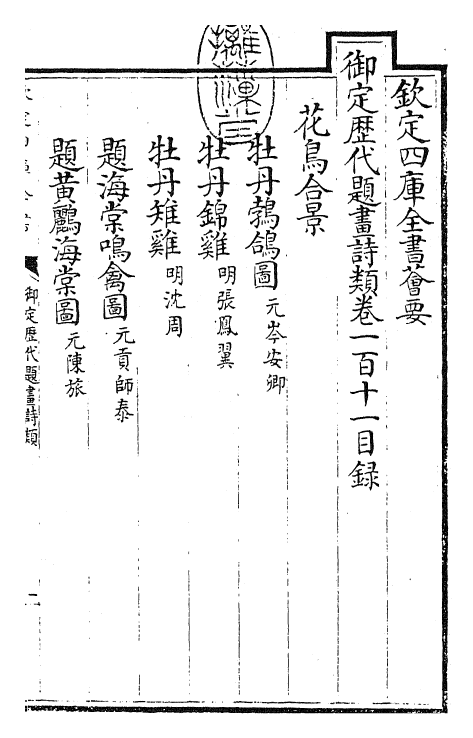 欽定四庫全書薈要
御定歷代題畫詩類卷一百十一目録
花鳥合景
牡丹鵓鴿圖 元岑安卿
牡丹錦雞 明張鳳翼
牡丹雉雞 明沈周
題海棠鳴禽圖 元貢師泰
題黃鸝海棠圖 元陳旅
御定歷代題畫詩類